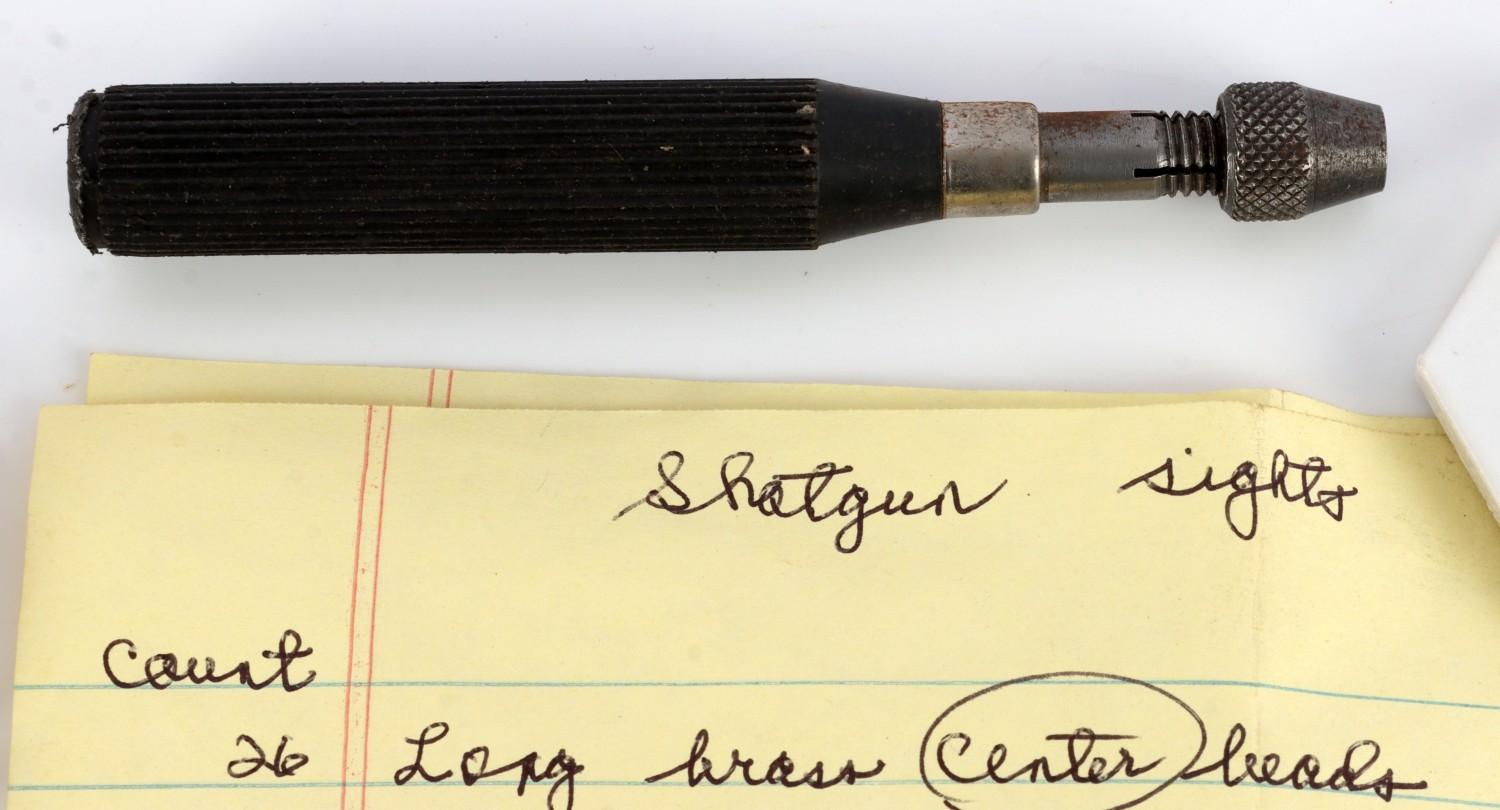 Shotgun sights
Count
26 Long brass center beads